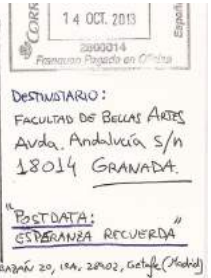 CORR
14 OCT. 2013
Españ
2800014
Franqueo Pagado en Oficina
DESTINATARIO:
FACULTAD DE BELLAS ARTES
Avda. Andalucía s/n
18014 GRANADA.
"POSTDATA:
ESPERANZA RECUERDA"
BAZÁN 20, 1ºA, 28902, Getafe (Madrid)